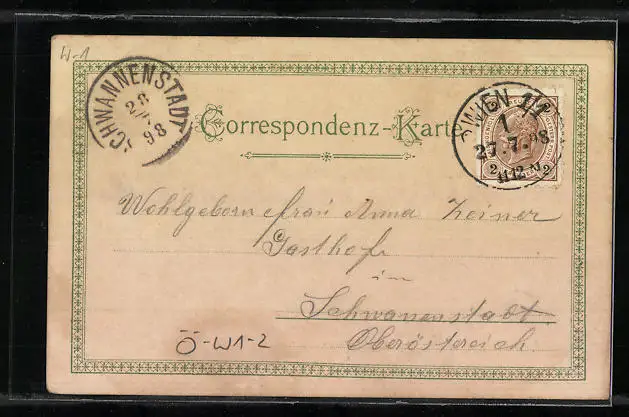 W-1
SCHWANNENSTADT
28
98
Correspondenz-Karte
WIEN 1/1
1
27.7.98
11-12 N
2 2
Wohlgeborn Frau Anna Zeiner
Gasthof
in
Schwanenstadt
Oberösterreich
Ö-W1-2